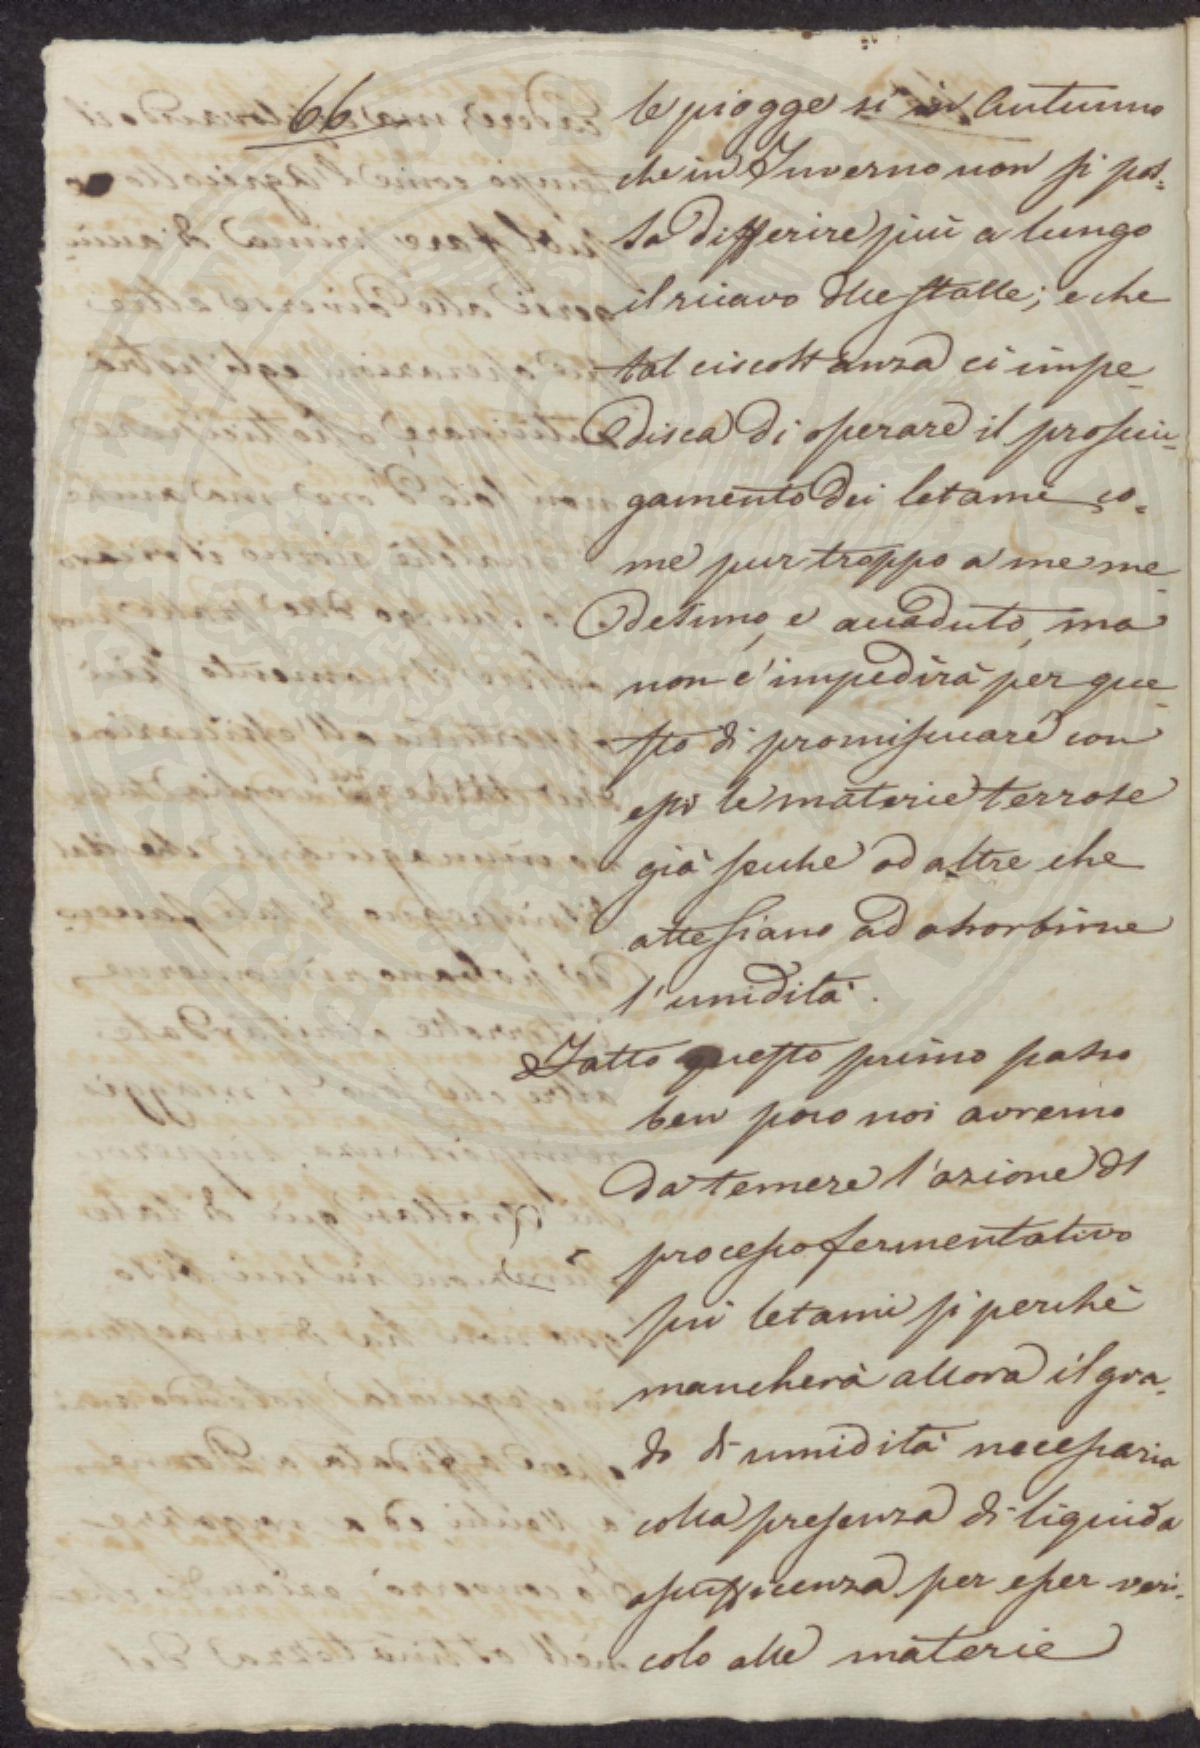 66
le piogge si in Autunno
che in Inverno non si pos=
sa differire più a lungo
il ricavo dlle stalle; e che
tal circostanza ci impe=
disca di operare il prosciu=
gamento dei letami co=
me pur troppo a me me=
desimo, e accaduto, ma
non c'impedirà per que=
sto di promiscuare con
essi le materie terrose
già secche od altre che
atte siano ad assorbirne
l'umidità.
Fatto questo primo passo
ben poco noi avremo
da temere l'azione dl
processo fermentativo
sui letami si perchè
mancherà allora il gra=
do di umidità necessaria
colla presenza di liquida
a sufficenza per esser vei=
colo alle materie